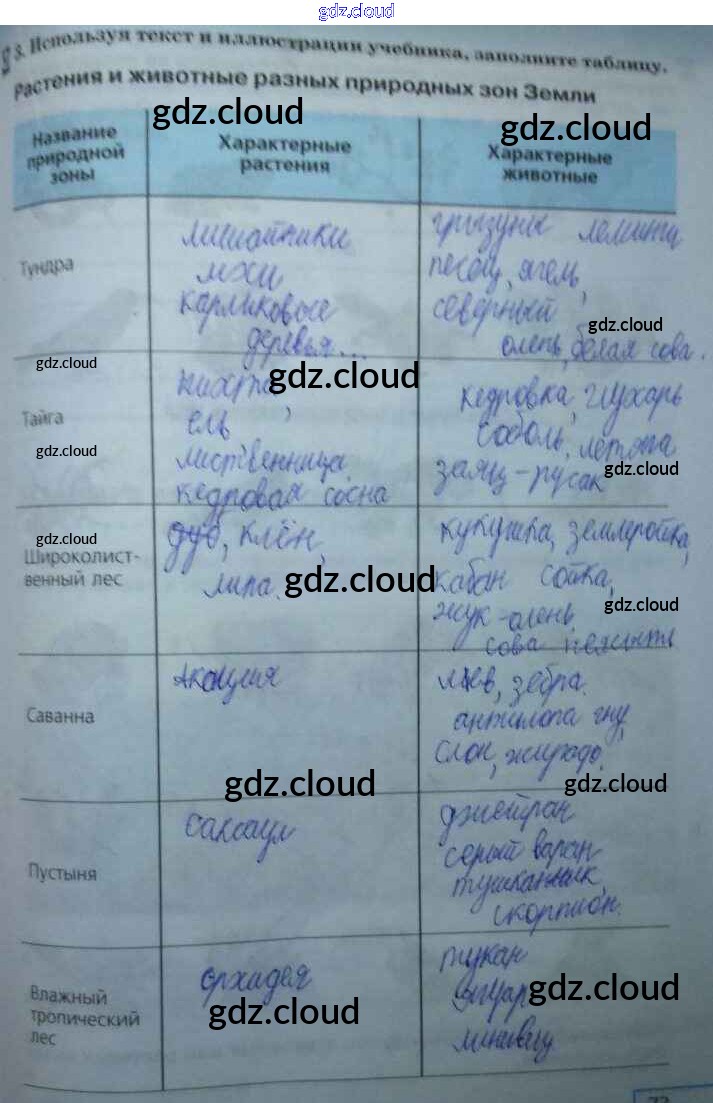 gdz.cloud
3. Используя текст и иллюстрации учебника, заполните таблицу.
Растения и животные разных природных зон Земли
gdz.cloud
gdz.cloud
Название природной зоны
Характерные растения
Характерные животные
Тундра
лишайники
мхи
карликовые
деревья...
грызуны лемминг
песец, ягель,
северный
олень, белая сова.
gdz.cloud
gdz.cloud
gdz.cloud
Тайга
пихта,
ель
лиственница
кедровая сосна
кедровка, глухарь
соболь, летяга
заяц-русак
gdz.cloud
gdz.cloud
gdz.cloud
Широколист-
венный лес
дуб, клён,
липа.
кукушка, землеройка,
кабан сойка,
жук-олень,
сова неясыть
gdz.cloud
gdz.cloud
Саванна
Акация
лев, зебра.
антилопа гну,
слон, жирафо,
gdz.cloud
gdz.cloud
Пустыня
саксаул
джейран
серый варан
тушканчик,
скорпион.
Влажный
тропический
лес
орхидея
тукан
gdz.cloud
gdz.cloud
73